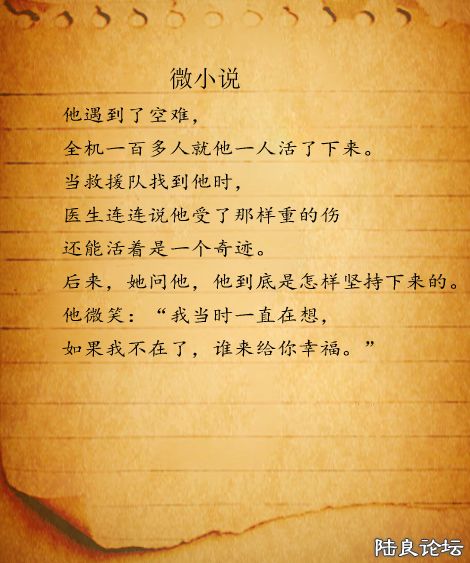 微小说
他遇到了空难，
全机一百多人就他一人活了下来。
当救援队找到他时，
医生连连说他受了那样重的伤
还能活着是一个奇迹。
后来，她问他，他到底是怎样坚持下来的。
他微笑：“我当时一直在想，
如果我不在了，谁来给你幸福。”
陆良论坛